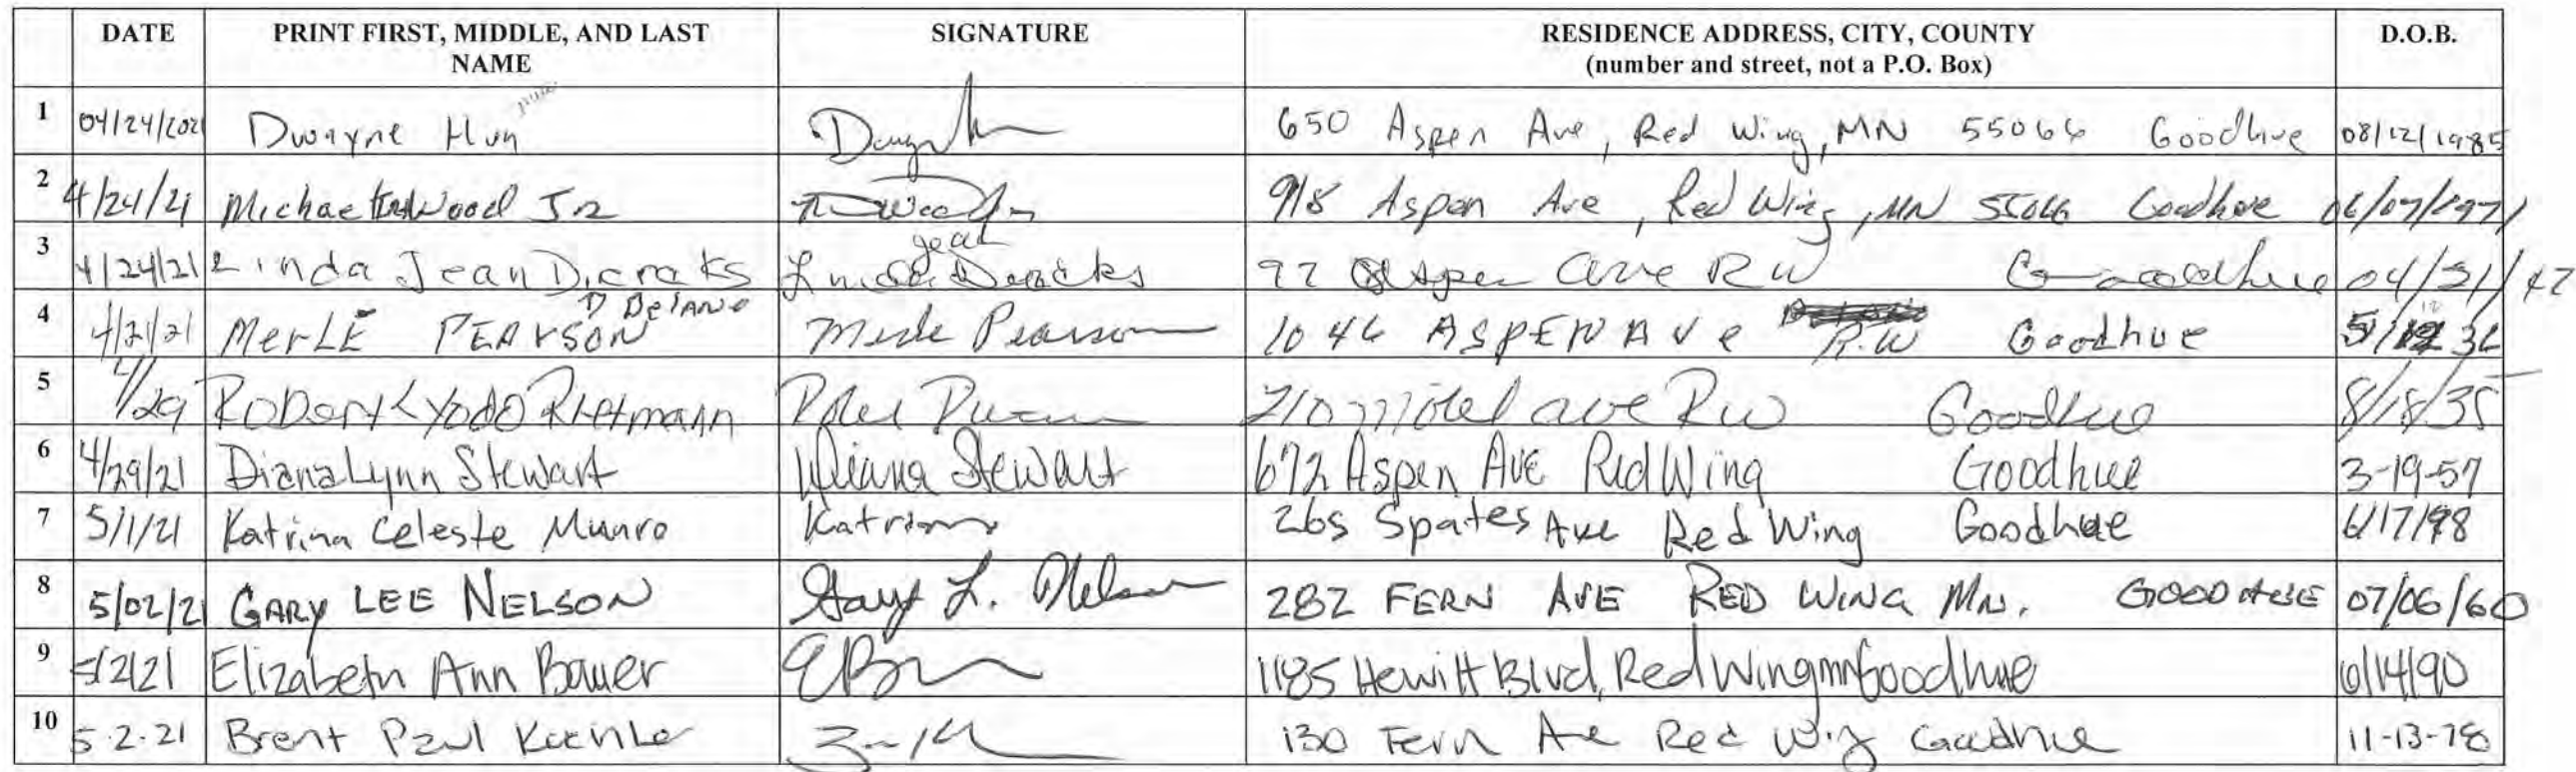 DATE PRINT FIRST, MIDDLE, AND LAST NAME SIGNATURE RESIDENCE ADDRESS, CITY, COUNTY (number and street, not a P.O. Box) D.O.B.
1 04/24/202 Dwayne 650 Aspen Ave, Red Wing, MN 55066 Goodhue 08/12/1985
2 4/24/21 Michael Wood Jr 918 Aspen Ave, Red Wing, MN 55066 Goodhue 06/07/1971
3 4/24/21 Linda Jean Diercks Linda Jean Diercks Aspen Ave RW Goodhue 04/21/47
4 Merle Delano PEARSON Merle Pearson 1046 ASPEN Ave R.W Goodhue
5 4/29 Robert Rietmann ave RW Goodhue 8/18/35
6 4/29/21 Diana Lynn Stewart Diana Stewart 672 Aspen Ave Red Wing Goodhue 3-19-57
7 5/1/21 Katrina Celeste Munro Katrina 265 Spates Ave Red Wing Goodhue 6/17/98
8 5/02/21 GARY LEE NELSON Gary L. Nelson 282 FERN AVE RED WING MN. GOODHUE 07/06/60
9 5/2/21 Elizabeth Ann Bauer 1185 Hewitt Blvd, Red Wing mn Goodhue 6/14/90
10 5.2.21 Brent Paul 130 Fern Ave Red Wing Goodhue 11-13-78